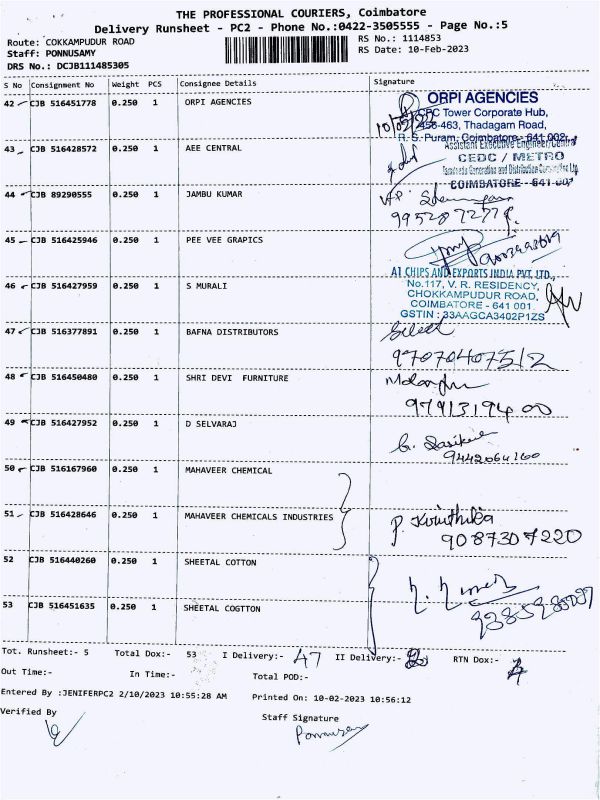 THE PROFESSIONAL COURIERS, Coimbatore
Delivery Runsheet - PC2 - Phone No.:0422-3505555 - Page No.:5
Route: COKKAMPUDUR ROAD
RS No.: 1114853
Staff: PONNUSAMY
RS Date: 10-Feb-2023
DRS No.: DCJB111485305
S No Consignment No Weight PCS Consignee Details Signature
42 CJB 516451778 0.250 1 ORPI AGENCIES
ORPI AGENCIES
CPC Tower Corporate Hub,
456-463, Thadagam Road,
R. S. Puram, Coimbatore- 641 002.
43 CJB 516428572 0.250 1 AEE CENTRAL
Assistant Executive Engineer/Central
CEDC / METRO
COIMBATORE - 641 001
44 CJB 89290555 0.250 1 JAMBU KUMAR
45 CJB 516425946 0.250 1 PEE VEE GRAPICS
46 CJB 516427959 0.250 1 S MURALI
A1 CHIPS AND EXPORTS INDIA PVT. LTD.,
No.117, V. R. RESIDENCY,
CHOKKAMPUDUR ROAD,
COIMBATORE - 641 001
GSTIN : 33AAGCA3402P1ZS
47 CJB 516377891 0.250 1 BAFNA DISTRIBUTORS
48 CJB 516450480 0.250 1 SHRI DEVI FURNITURE
49 CJB 516427952 0.250 1 D SELVARAJ
9442064160
50 CJB 516167960 0.250 1 MAHAVEER CHEMICAL
51 CJB 516428646 0.250 1 MAHAVEER CHEMICALS INDUSTRIES
9087307220
52 CJB 516440260 0.250 1 SHEETAL COTTON
53 CJB 516451635 0.250 1 SHEETAL COGTTON
Tot. Runsheet:- 5 Total Dox:- 53 I Delivery:- 47 II Delivery:- RTN Dox:-
Out Time:- In Time:- Total POD:-
Entered By :JENIFERPC2 2/10/2023 10:55:28 AM Printed On: 10-02-2023 10:56:12
Verified By Staff Signature